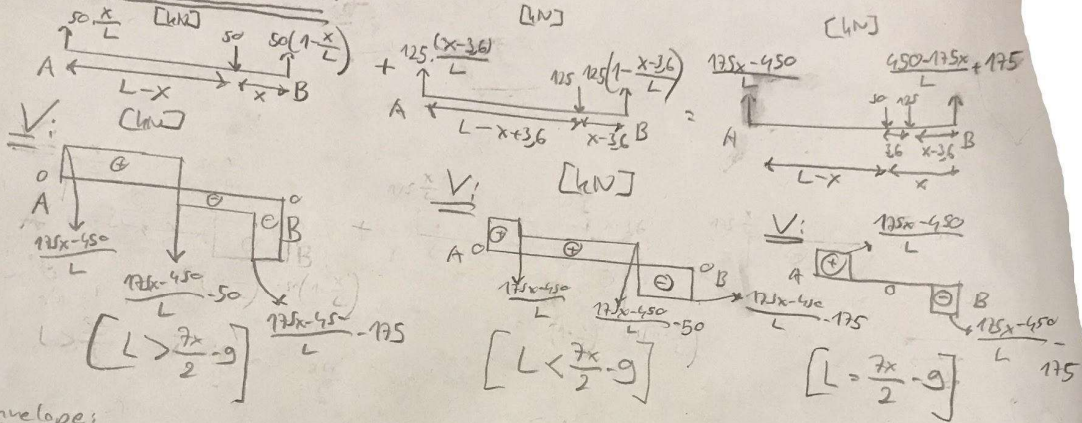 [kN]
50 · x/L
50
50(1 - x/L)
A
L-x
x
B
+
[kN]
125 · (x-3,6)/L
125
125(1 - (x-3,6)/L)
A
L-x+3,6
x-3,6
B
=
[kN]
(175x-450)/L
(450-175x)/L + 175
50
125
A
3,6
x-3,6
B
L-x
x
V:
[kN]
0
A
+
-
-
0
B
(175x-450)/L
(175x-450)/L - 50
(175x-450)/L - 175
[L > 7x/2 - 9]
V:
[kN]
A
0
+
+
-
0
B
(175x-450)/L
(175x-450)/L - 50
(175x-450)/L - 175
[L < 7x/2 - 9]
V:
(175x-450)/L
A
+
0
-
B
(175x-450)/L - 175
[L = 7x/2 - 9]